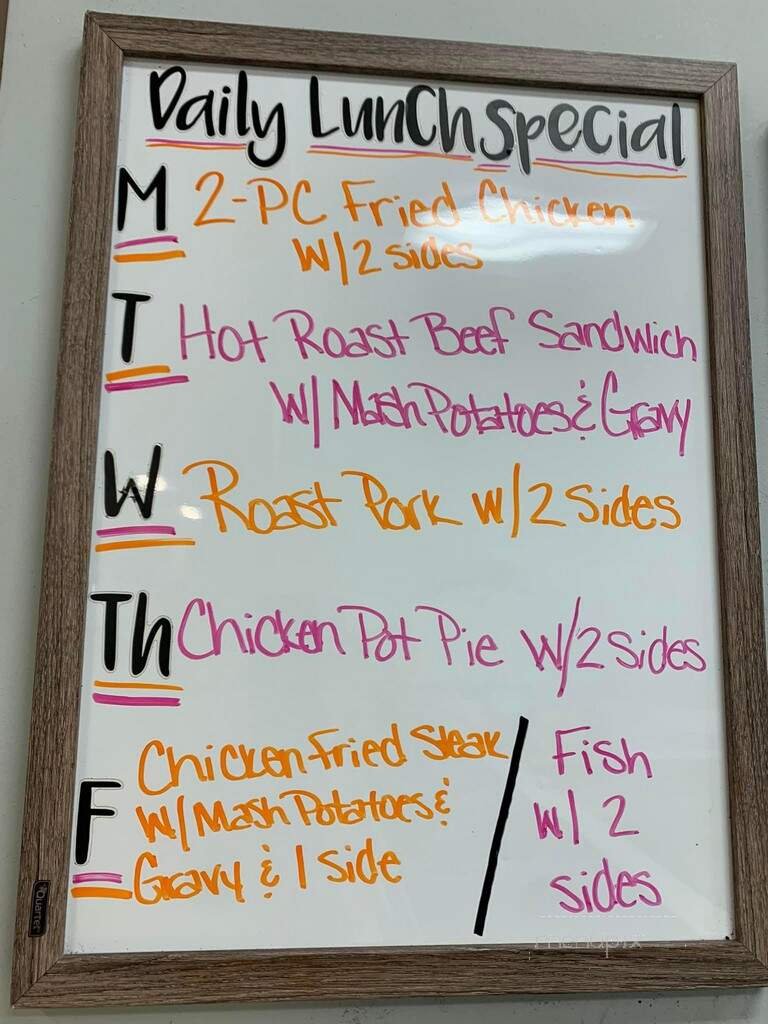 Daily Lunch Special
M 2-PC Fried Chicken
W/2 sides
T Hot Roast Beef Sandwich
W/ Mash Potatoes & Gravy
W Roast Pork w/2 Sides
Th Chicken Pot Pie w/2 sides
F Chicken Fried Steak
W/ Mash Potatoes &
Gravy & 1 side
/ Fish
w/ 2
sides
Quartet
menupix